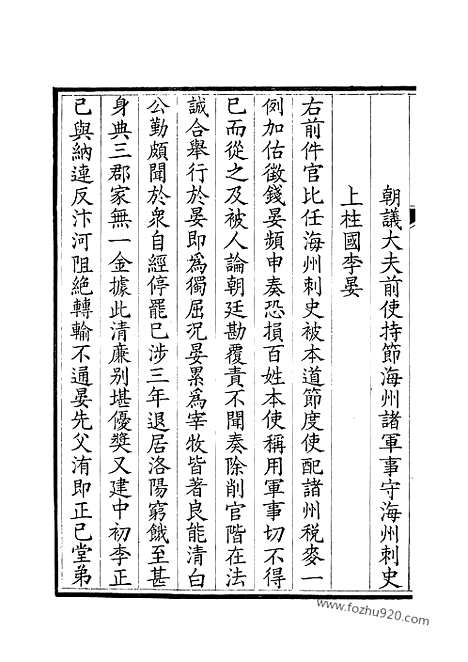 朝議大夫前使持節海州諸軍事守海州刺史
上柱國李晏
右前件官比任海州刺史被本道節度使配諸州稅麥一
例加估徵錢晏頻申奏恐損百姓本使稱用軍事切不得
已而從之及被人論朝廷勘覆責不聞奏除削官階在法
誠合舉行於晏即為獨屈况晏累為宰牧皆著良能清白
公勤頗聞於衆自經停罷已涉三年退居洛陽窮餓至甚
身典三郡家無一金據此清廉别堪優獎又建中初李正
已與納連反汴河阻絶轉輸不通晏先父洧即正已堂弟
www.fozhu920.com